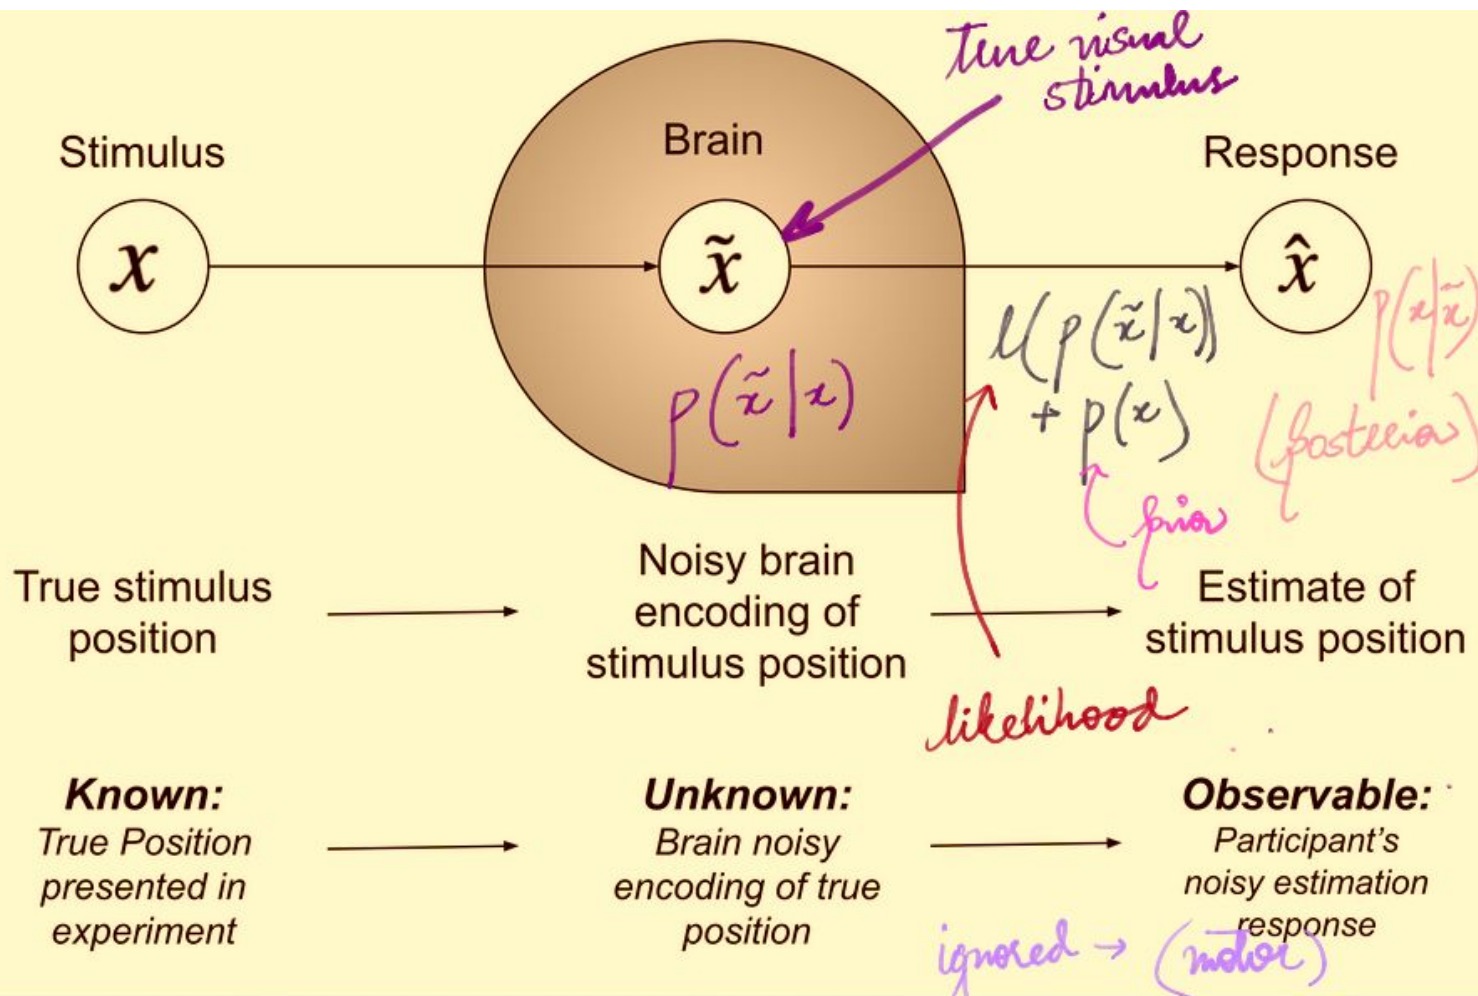 True visual
stimulus
Stimulus
Brain
Response
x
x̃
x̂
p(x̃|x)
l(p(x̃|x))
+ p(x)
p(x|x̃)
(posterior)
prior
True stimulus
position
Noisy brain
encoding of
stimulus position
Estimate of
stimulus position
likelihood
Known:
True Position
presented in
experiment
Unknown:
Brain noisy
encoding of true
position
Observable:
Participant's
noisy estimation
response
ignored → (motor)